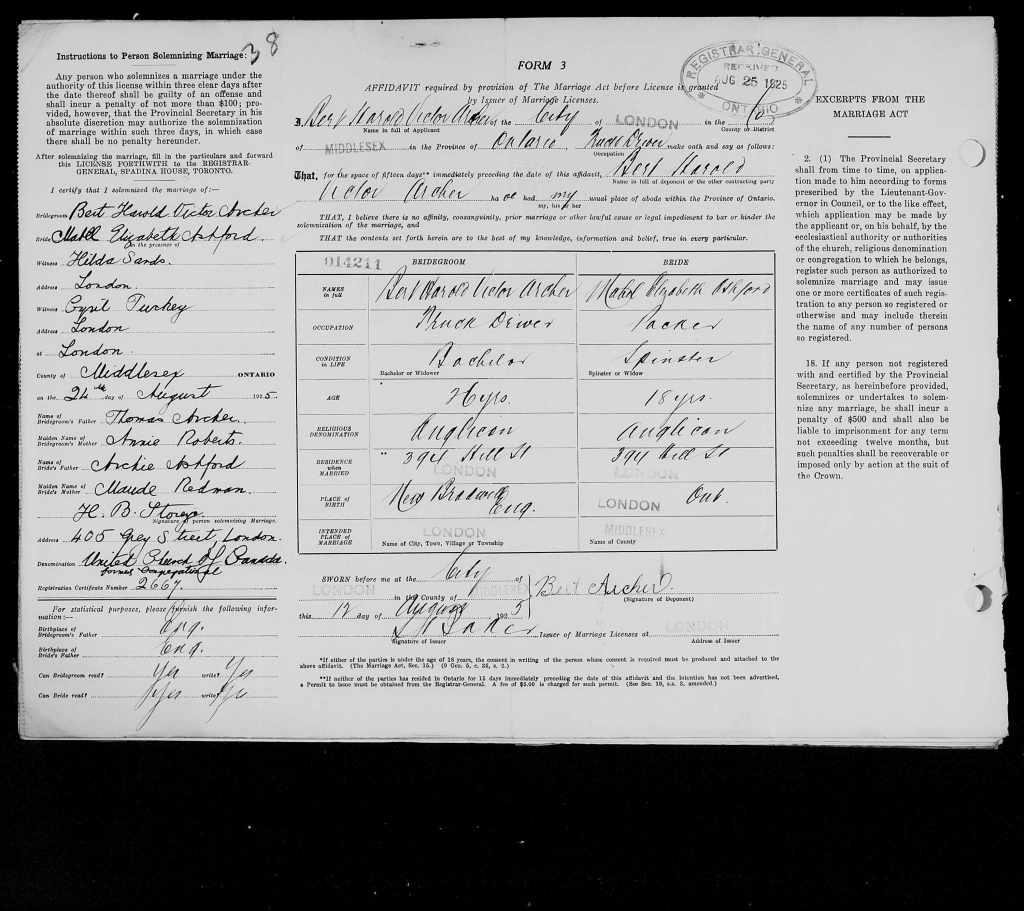 38
Instructions to Person Solemnizing Marriage:
Any person who solemnizes a marriage under the
authority of this license within three clear days after
the date thereof shall be guilty of an offense and
shall incur a penalty of not more than $100; pro-
vided, however, that the Provincial Secretary in his
absolute discretion may authorize the solemnization
of marriage within such three days, in which case
there shall be no penalty hereunder.
After solemnizing the marriage, fill in the particulars and forward
this LICENSE FORTHWITH to the REGISTRAR-
GENERAL, SPADINA HOUSE, TORONTO.
I certify that I solemnized the marriage of:—
Bridegroom Bert Harold Victor Archer
Bride Mabel Elizabeth Ashford.
in the presence of
Witness Hilda Sands.
Address London.
Witness Cyril Turkey
Address London
at London.
County of Middlesex ONTARIO
on the 24th day of August 1925.
Name of Bridegroom's Father Thomas Archer.
Maiden Name of Bridegroom's Mother Annie Roberts.
Name of Bride's Father Archie Ashford
Maiden Name of Bride's Mother Maude Redman.
H. B. Storey.
Signature of person solemnizing Marriage.
Address 405 Grey Street, London.
Denomination United Church of Canada.
former Congregational
Registration Certificate Number 2667.
For statistical purposes, please furnish the following infor-
mation:—
Birthplace of Bridegroom's Father Eng.
Birthplace of Bride's Father Eng.
Can Bridegroom read? Yes write? Yes
Can Bride read? Yes write? Yes
FORM 3
REGISTRAR GENERAL
RECEIVED
AUG 25 1925
ONTARIO
AFFIDAVIT required by provision of The Marriage Act before License is granted
by Issuer of Marriage Licenses.
I, Bert Harold Victor Archer of the City of LONDON in the Co
Name in full of Applicant County or District
of MIDDLESEX in the Province of Ontario, Truck Driver make oath and say as follows:
Occupation
That, for the space of fifteen days** immediately preceding the date of this affidavit, Bert Harold
Name in full of deponent or the other contracting party
Victor Archer ha d had my usual place of abode within the Province of Ontario.
my, his or her
THAT, I believe there is no affinity, consanguinity, prior marriage or other lawful cause or legal impediment to bar or hinder the
solemnization of the marriage, and
THAT the contents set forth herein are to the best of my knowledge, information and belief, true in every particular.
014211 BRIDEGROOM BRIDE
NAMES in full Bert Harold Victor Archer Mabel Elizabeth Ashford
OCCUPATION Truck Driver Packer
CONDITION in LIFE Bachelor Spinster
Bachelor or Widower Spinster or Widow
AGE 26 yrs. 18 yrs.
RELIGIOUS DENOMINATION Anglican Anglican
RESIDENCE when MARRIED 394 Hill St LONDON 394 Hill St LONDON
PLACE of BIRTH New Bradwell Eng. LONDON Ont.
INTENDED PLACE of MARRIAGE LONDON MIDDLESEX
Name of City, Town, Village or Township Name of County
SWORN before me at the City of
LONDON in the County of MIDDLESEX
Bert Archer.
(Signature of Deponent)
this 12 day of August 1925
Baker Issuer of Marriage Licenses at LONDON
Signature of Issuer Address of Issuer
*If either of the parties is under the age of 18 years, the consent in writing of the person whose consent is required must be produced and attached to the
above affidavit. (The Marriage Act, Sec. 15.) (9 Geo. 5, c. 35, s. 2.)
**If neither of the parties has resided in Ontario for 15 days immediately preceding the date of this affidavit and the intention has not been advertised,
a Permit to issue must be obtained from the Registrar-General. A fee of $5.00 is charged for such permit. (See Sec. 19, s.s. 2, amended.)
EXCERPTS FROM THE
MARRIAGE ACT
2. (1) The Provincial Secretary
shall from time to time, on applica-
tion made to him according to forms
prescribed by the Lieutenant-Gov-
ernor in Council, or to the like effect,
which application may be made by
the applicant or, on his behalf, by the
ecclesiastical authority or authorities
of the church, religious denomination
or congregation to which he belongs,
register such person as authorized to
solemnize marriage and may issue
one or more certificates of such regis-
tration to any person so registered or
otherwise and may include therein
the name of any number of persons
so registered.
18. If any person not registered
with and certified by the Provincial
Secretary, as hereinbefore provided,
solemnizes or undertakes to solem-
nize any marriage, he shall incur a
penalty of $500 and shall also be
liable to imprisonment for any term
not exceeding twelve months, but
such penalties shall be recoverable or
imposed only by action at the suit of
the Crown.